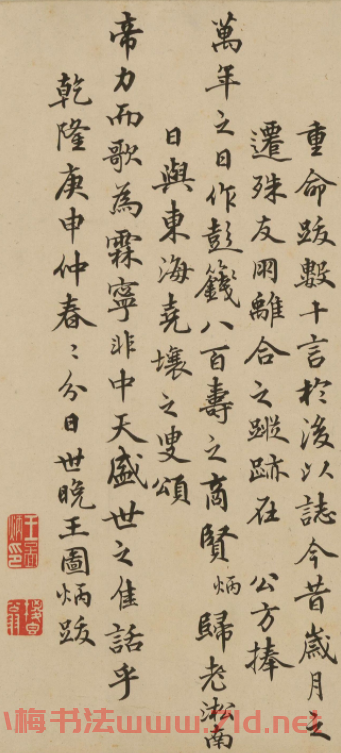 重命跋數十言於後以誌今昔歲月之
遷殊友朋離合之蹤跡在 公方捧
萬年之日作彭籛八百壽之商賢炳歸老淞南
日與東海堯壤之叟頌
帝力而歌為霖寧非中天盛世之佳話乎
乾隆庚申仲春〻分日世晚王圖炳跋
梅书法www.
.net